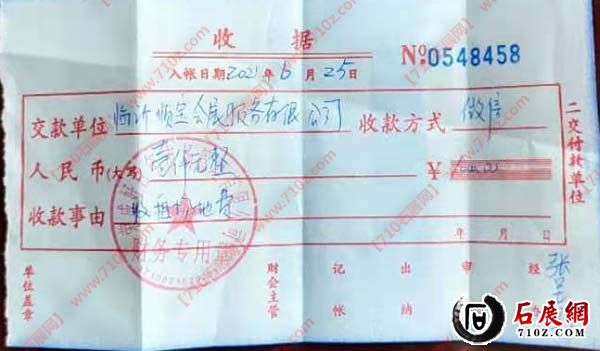 收 据
№0548458
入帐日期2021年6月25日
交款单位 临沂顺宝会展服务有限公司 收款方式 微信
人民币(大写) 壹仟元整 ¥
收款事由 收租场地费
年 月 日
二交付款单位
财务专用章
单位盖章 财会主管 记帐 出纳 审 经 张
石展網
710Z.COM
【710z石展网】
www.710z.com